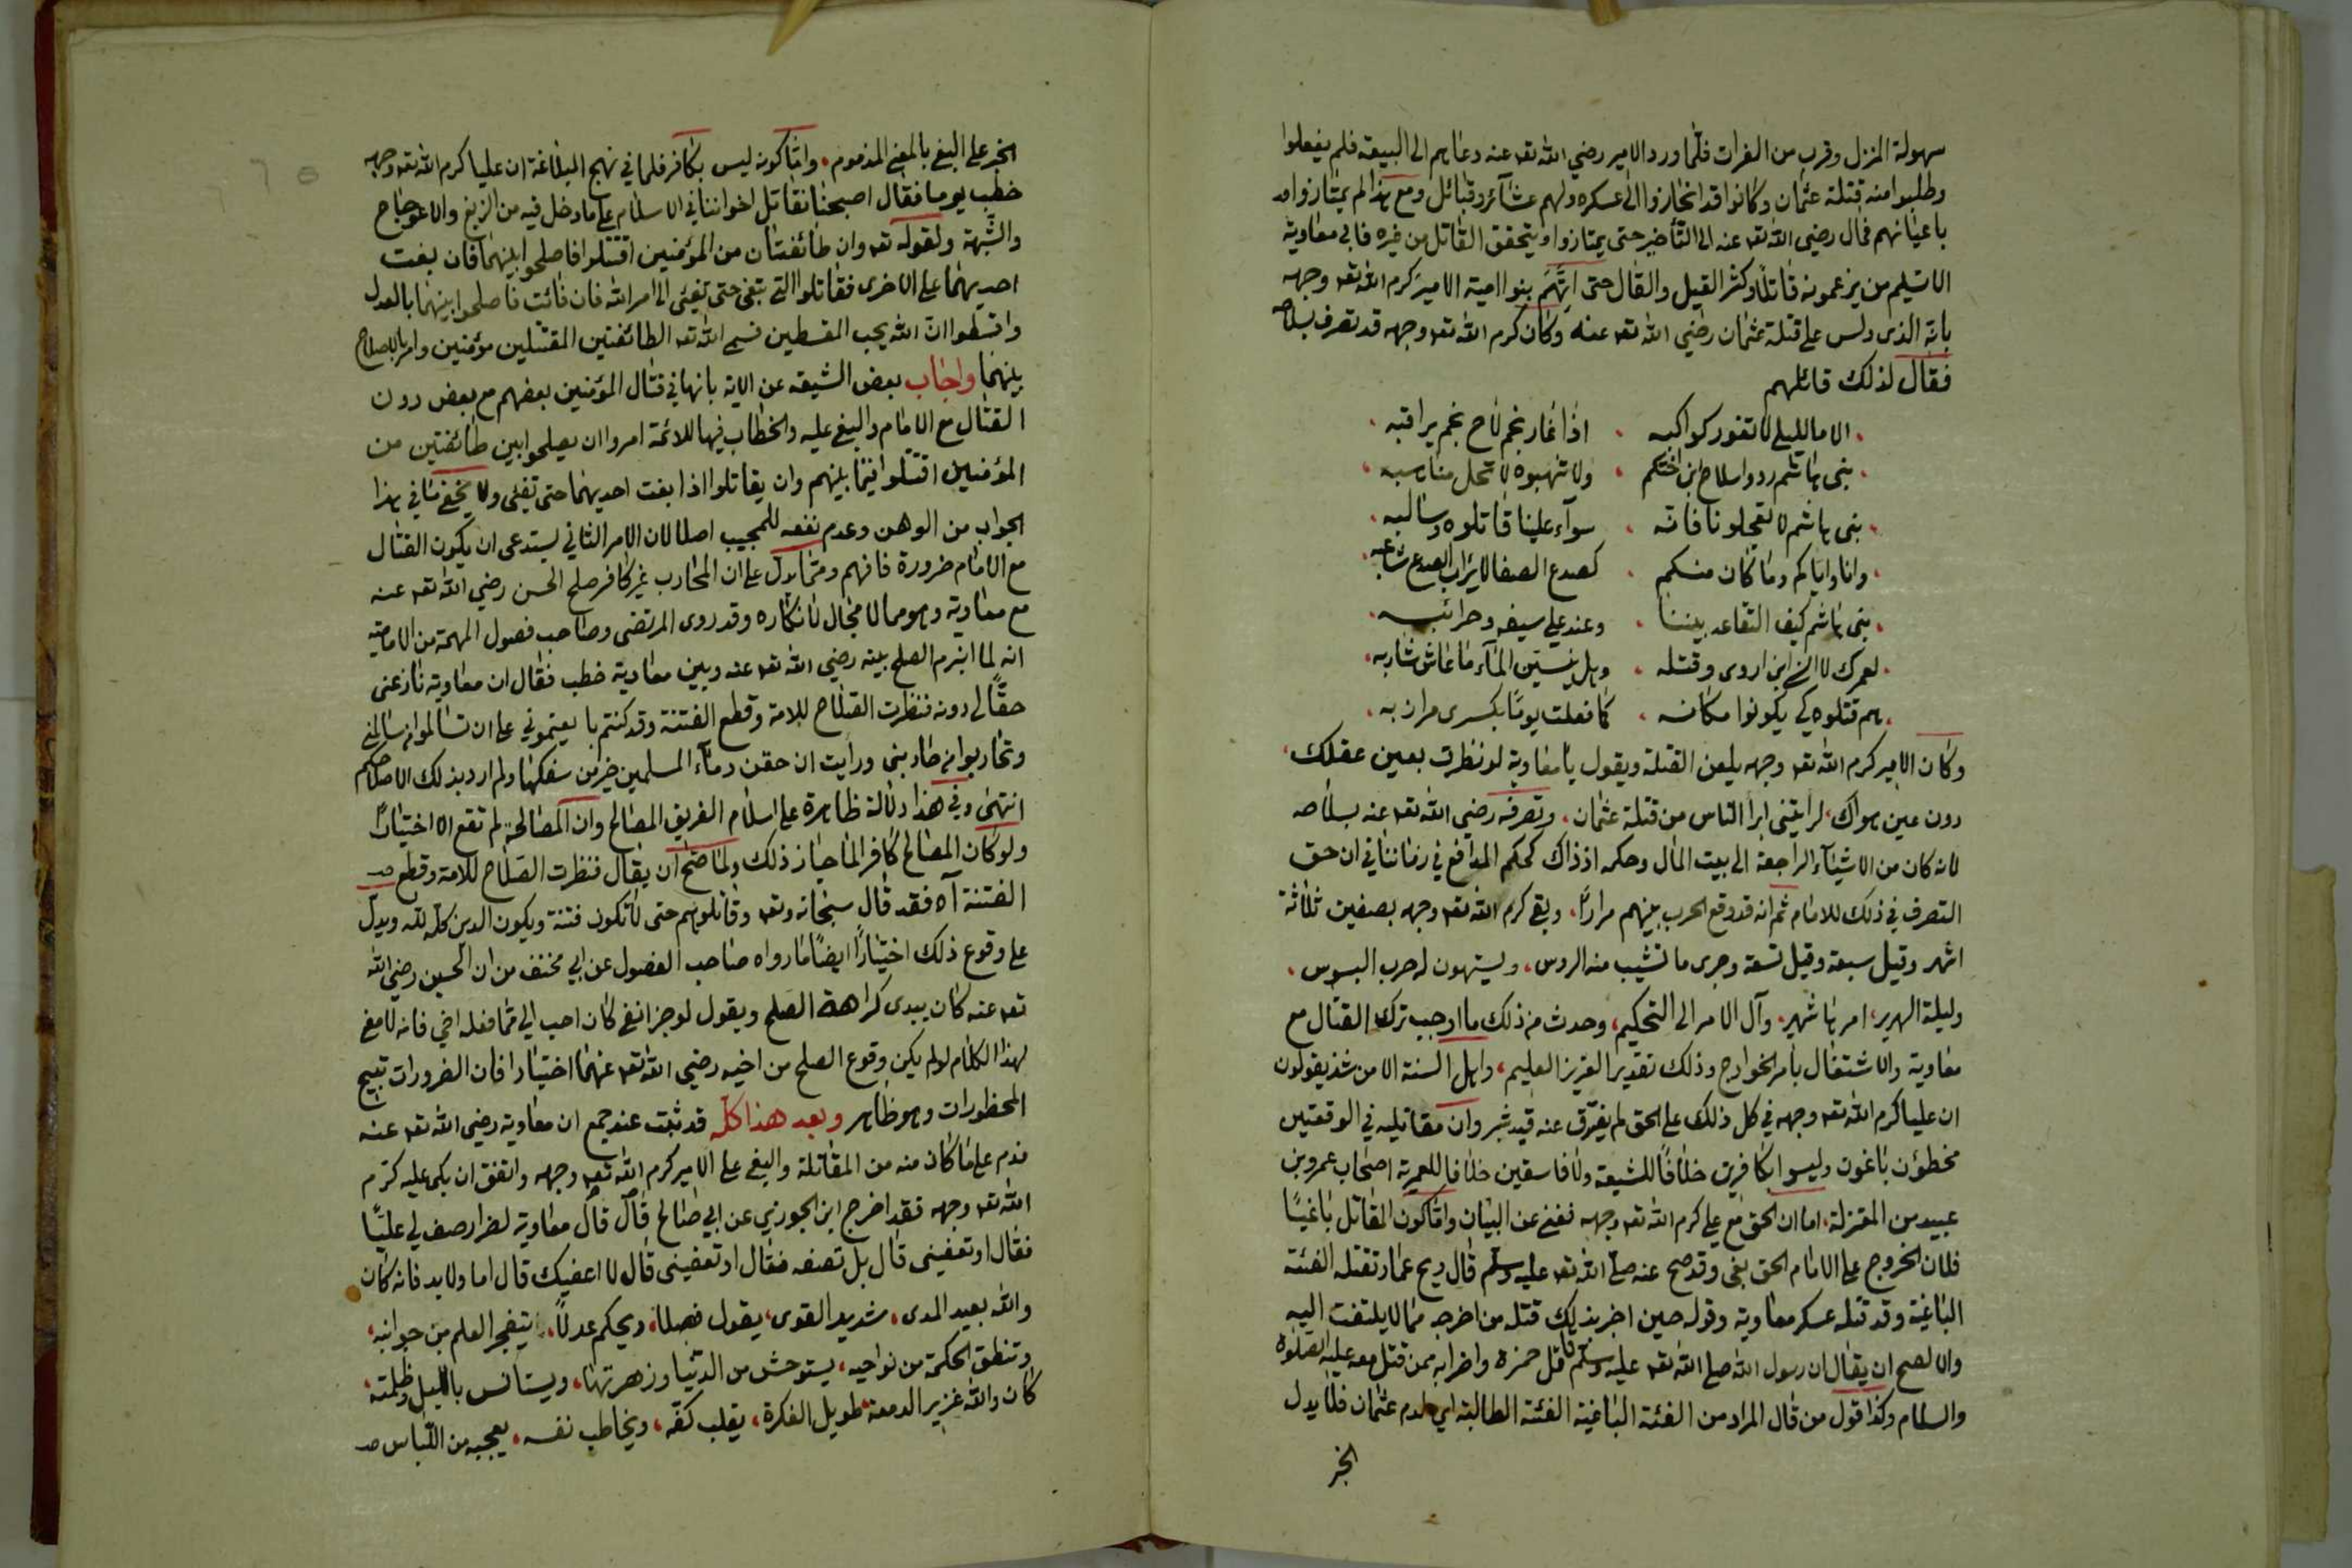 سهولة المنزل وقرب من الفرات فلما ورد الامير رضي الله تعه عنه دعاهم الى البيعة فلم يفعلوا
وطلبوا منه قتلة عثمان وكانوا قد انحازوا الى عسكره ولهم عشائر وقبائل ومع هذا لم يمتازوا
باعيانهم فمال رضي الله تعه عنه الى التأخير حتى يمتازوا او يتحقق القاتل من غيره فابى معاوية
الا تسليم من يزعمونه قاتلا وكثر القيل والقال حتى اتهم بنوا امية الامير كرم الله تعه وجهه
بانه الذى دلس على قتلة عثمان رضي الله تعه عنه وكان كرم الله تعه وجهه قد تصرف بسلاحه
فقال لذلك قائلهم
الا ما لليلى لا تغور كواكبه ، اذا غار نجم لاح نجم يراقبه
بنى هاشم ردوا سلاح ابن اختكم ، ولا تنهبوه لا تحل مناهبه
بنى هاشم لا تعجلونا فانه ، سوآء علينا قاتلوه وسالبه
وانا واياكم وما كان منكم ، كصدع الصفا لا يرأب الصدع شاعبه
بنى هاشم كيف التقاعد بيننا ، وعند علي سيفه وحرائبه
لعمرك لا انسى ابن اروى وقتله ، وهل ينسين المآء ما عاش شاربه
هم قتلوه كي يكونوا مكانه ، كما فعلت يوما بكسرى مرازبه
وكان الامير كرم الله تعه وجهه يلعن القتلة ويقول يا معاوية لو نظرت بعين عقلك
دون عين هواك ، لرايتنى ابرأ الناس من قتلة عثمان ، وتصرفه رضي الله تعه عنه بسلاحه
لانه كان من الاشيآء الراجعة الى بيت المال وحكمه اذ ذاك كحكم المدافع في زماننا في ان حق
التصرف في ذلك للامام ثم انه قد وقع الحرب بينهم مرارا ، وبقى كرم الله تعه وجهه بصفين ثلاثة
اشهر وقيل سبعة وقيل تسعة وجرى ما تشيب منه الروس ، ويستهون له حرب البسوس ،
وليلة الهرير ، امرها شهير ، وآل الامر الى التحكيم ، وحدث من ذلك ما اوجب ترك القتال مع
معاوية والاشتغال بامر الخوارج وذلك تقدير العزيز العليم ، واهل السنة الا من شذ يقولون
ان عليا كرم الله تعه وجهه في كل ذلك على الحق لم يفترق عنه قيد شبر وان مقاتليه في الوقعتين
مخطؤن باغون وليسوا بكافرين خلافا للشيعة ولا فاسقين خلافا للعمرية اصحاب عمرو بن
عبيد من المعتزلة ، اما ان الحق مع علي كرم الله تعه وجهه فغني عن البيان واما كون المقاتل باغيا
فلان الخروج على الامام الحق بغى وقد صح عنه صلى الله تعه عليه وسلم قال ويح عمار تقتله الفئة
الباغية وقد قتله عسكر معاوية وقوله حين اخبر بذلك قتله من اخرجه مما لا يلتفت اليه
والا لصح ان يقال ان رسول الله صلى الله تعه عليه وسلم قاتل حمزة واضرابه ممن قتل معه عليه الصلوة
والسلام وكذا قول من قال المراد من الفئة الباغية الفئة الطالبة اي لدم عثمان فلا يدل
الخبر
الخبر على البغى بالمعنى المذموم ، واما كونه ليس بكافر فلما في نهج البلاغة ان عليا كرم الله تعه وجهه
خطب يوما فقال اصبحنا نقاتل اخواننا في الاسلام على ما دخل فيه من الزيغ والاعوجاج
والشبهة ولقوله تعه وان طائفتان من المؤمنين اقتتلوا فاصلحوا بينهما فان بغت
احديهما على الاخرى فقاتلوا التى تبغى حتى تفيئ الى امر الله فان فائت فاصلحوا بينهما بالعدل
واقسطوا ان الله يحب المقسطين فسمى الله تعه الطائفتين المقتتلين مؤمنين وامر بالاصلاح
بينهما واجاب بعض الشيعة عن الاية بانها في قتال المؤمنين بعضهم مع بعض دون
القتال مع الامام والبغى عليه والخطاب فيها للائمة امروا ان يصلحوا بين طائفتين من
المؤمنين اقتتلوا فيما بينهم وان يقاتلوا اذا بغت احديهما حتى تفيئ ولا يخفى ما في هذا
الجواب من الوهن وعدم نفعه للمجيب اصلا لان الامر الثاني يستدعى ان يكون القتال
مع الامام ضرورة فافهم ومما يدل على ان المحارب غير كافر صلح الحسن رضي الله تعه عنه
مع معاوية وهو مما لا مجال لانكاره وقد روى المرتضى وصاحب فصول المهمة من الامامية
انه لما ابرم الصلح بينه رضي الله تعه عنه وبين معاوية خطب فقال ان معاوية نازعنى
حقا لى دونه فنظرت الصلاح للامة وقطع الفتنة وقد كنتم بايعتمونى على ان تسالموا من سالمنى
وتحاربوا من حاربنى ورأيت ان حقن دمآء المسلمين خير من سفكها ولم ارد بذلك الا صلاحكم
انتهى وفي هذا دلالة ظاهرة على اسلام الفريق المصالح وان المصالحة لم تقع الا اختيارا
ولو كان المصالح كافرا لما جاز ذلك ولما صح ان يقال فنظرت الصلاح للامة وقطع
الفتنة آه فقد قال سبحانه وتعه وقاتلوهم حتى لا تكون فتنة ويكون الدين كله لله ويدل
على وقوع ذلك اختيارا ايضا ما رواه صاحب الفصول عن ابي مخنف من ان الحسين رضي الله
تعه عنه كان يبدى كراهة الصلح ويقول لو جز انفى كان احب الي مما فعله اخي فانه لا معنى
لهذا الكلام لو لم يكن وقوع الصلح من اخيه رضي الله تعه عنهما اختيارا فان الضرورات تبيح
المحظورات وهو ظاهر وبعد هذا كله قد ثبت عند جمع ان معاوية رضي الله تعه عنه
ندم على ما كان منه من المقاتلة والبغى على الامير كرم الله تعه وجهه واتفق ان بكى عليه كرم
الله تعه وجهه فقد اخرج ابن الجوزي عن ابي صالح قال قال معاوية لضرار صف لي عليا
فقال او تعفينى قال بل تصفه فقال او تعفينى قال لا اعفيك قال اما ولا بد فانه كان
والله بعيد المدى ، شديد القوى ، يقول فصلا ، ويحكم عدلا ، يتفجر العلم من جوانبه ،
وتنطق الحكمة من نواحيه ، يستوحش من الدنيا وزهرتها ، ويستانس بالليل وظلمته ،
كان والله غزير الدمعة ، طويل الفكرة ، يقلب كفه ، ويخاطب نفسه ، يعجبه من اللباس